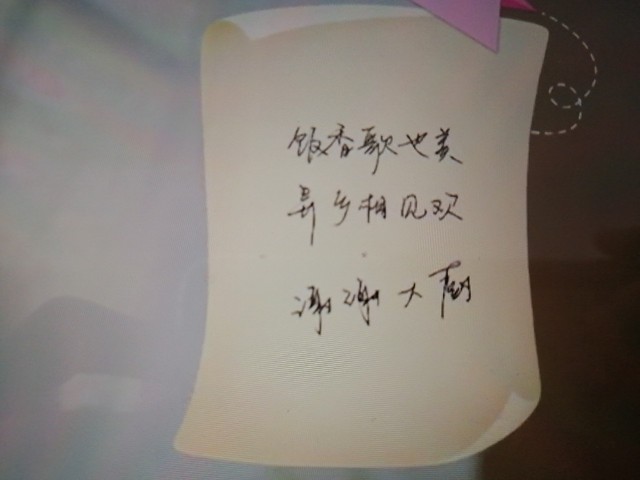 饭香歌也美
异乡相见欢
谢谢大厨